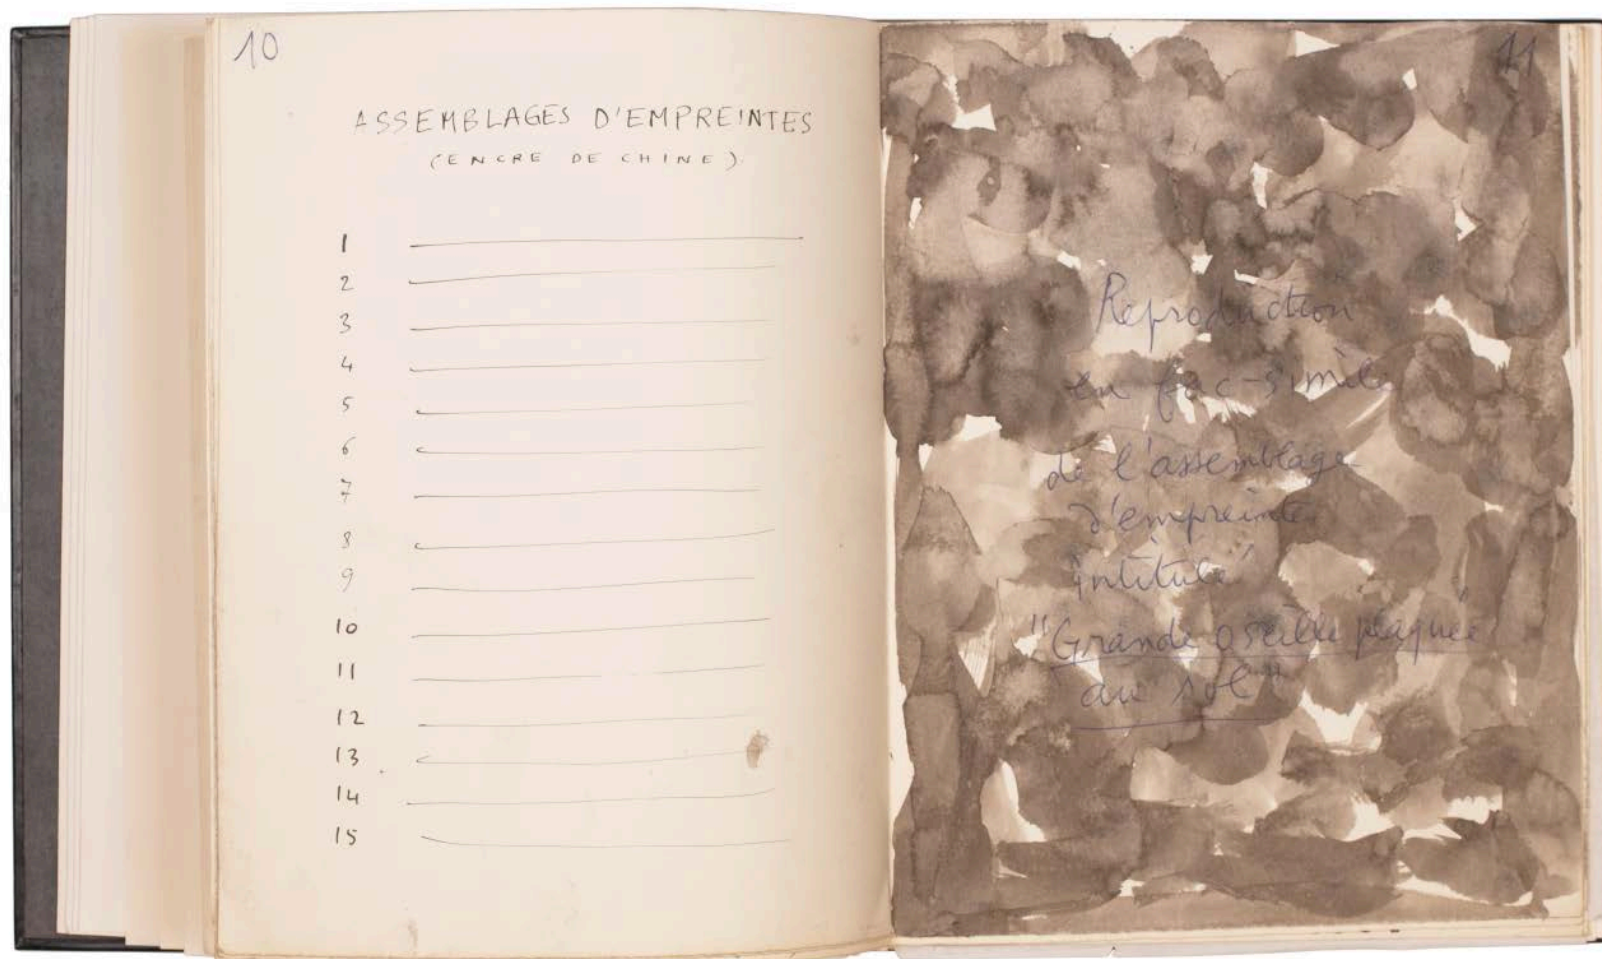 10
ASSEMBLAGES D'EMPREINTES
(ENCRE DE CHINE).
1
2
3
4
5
6
7
8
9
10
11
12
13
14
15
11
Reproduction
en fac-similé
de l'assemblage
d'empreintes
intitulé
"Grande oseille plaquée
au sol"